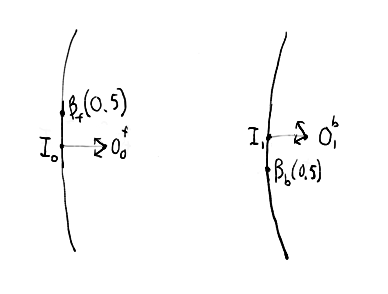 β_f(0.5)
I_0 O_0^f
I_1 O_1^b
β_b(0.5)